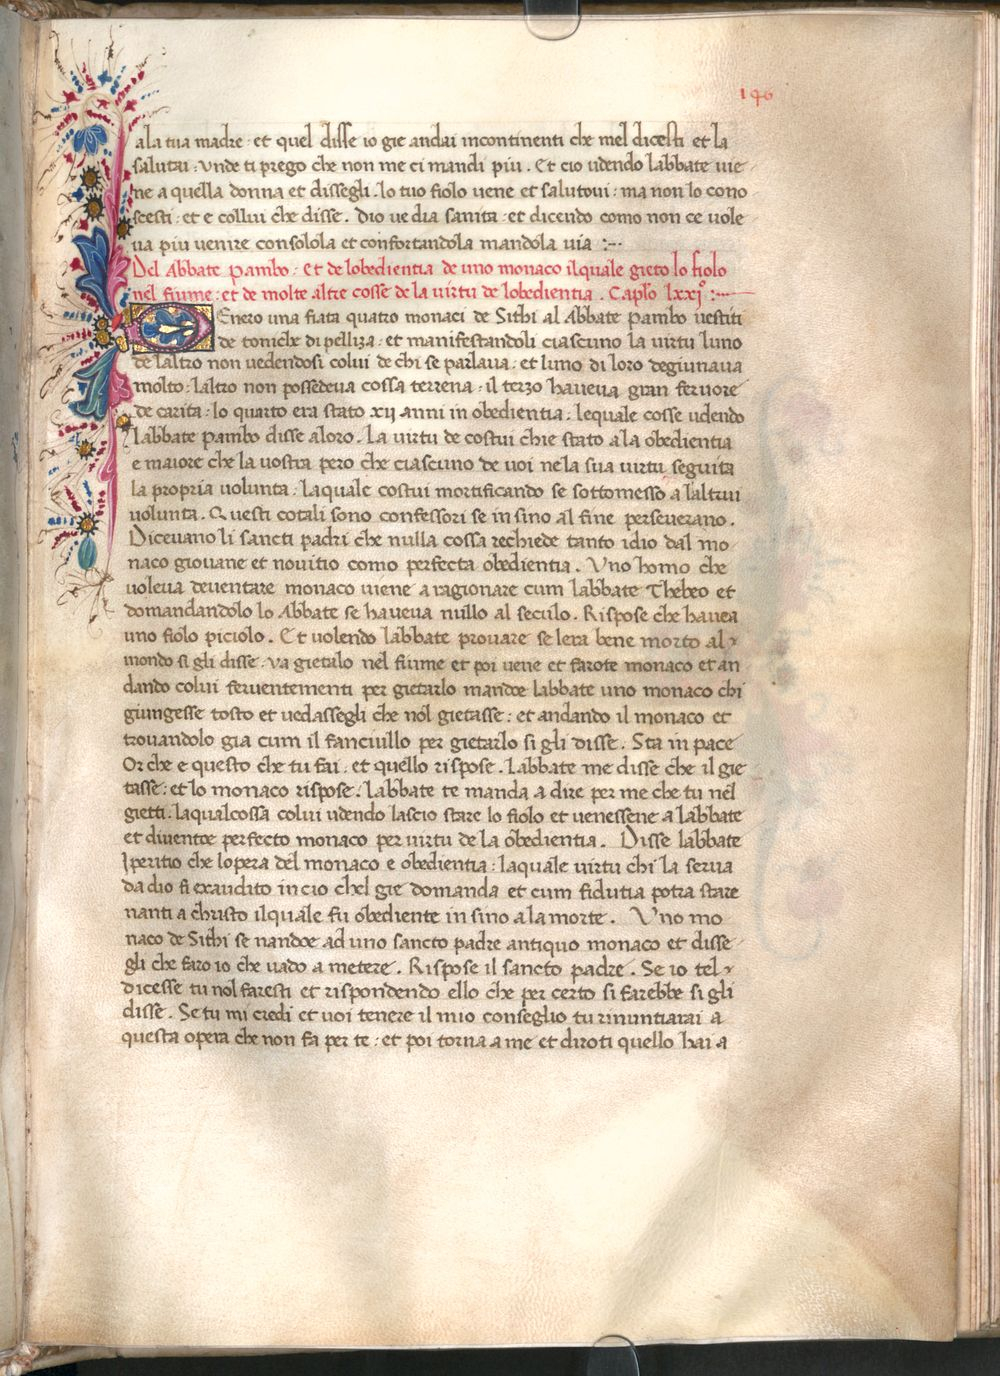 146
ala tua madre · et quel disse io gie andai incontinenti che mel dicesti et la
salutai · vnde ti prego che non me ci mandi piu . Et cio udendo labbate uie
ne a quella donna et dissegli . lo tuo fiolo uene et salutoui · ma non lo cono
scesti · et e collui che disse . Dio ue dia sanita · et dicendo como non ce uole
ua piu uenire consolola et confortandola mandola uia :~
Del Abbate Pambo · Et de lobedientia de uno monaco ilquale gieto lo fiolo
nel fiume · et de molte altre cosse de la uirtu de lobedientia . Caplo lxxi° :~
Enero una fiata quatro monaci de Sithi al Abbate Pambo uestiti
de toniche di pelliza · et manifestandoli ciascuno la uirtu luno
de laltro non uedendosi colui de chi se parlaua · et luno di loro degiunaua
molto · laltro non possedeua cossa terrena · il terzo haueua gran feruore
de carita · lo quarto era stato xij anni in obedientia · lequale cosse udendo
labbate Pambo disse aloro . La uirtu de costui chie stato ala obedientia
e maiore che la uostra pero che ciascuno de uoi nela sua uirtu seguita
la propria uolunta · laquale costui mortificando se sottomesso a laltrui
uolunta . Questi cotali sono confessori se in sino al fine perseuerano .
Diceuano li sancti padri che nulla cossa rechiede tanto idio dal mo
naco giouane et nouitio como perfecta obedientia . Vno homo che
uoleua deuentare monaco uiene a ragionare cum labbate Thebeo et
domandandolo lo Abbate se haueua nullo al seculo . Rispose che hauea
uno fiolo piciolo . Et uolendo labbate prouare se lera bene morto al
mondo si gli disse · va gietalo nel fiume et poi uene et farote monaco et an
dando colui feruentementi per gietarlo mandoe labbate uno monaco chi
giungesse tosto et uedassegli che nol gietasse · et andando il monaco et
trouandolo gia cum il fanciullo per gietarlo si gli disse . Sta in pace
Or che e questo che tu fai · et quello rispose . Labbate me disse che il gie
tasse · et lo monaco rispose . Labbate te manda a dire per me che tu nel
gietti · laqualcossa colui udendo lascio stare lo fiolo et uenessene a labbate
et diuentoe perfecto monaco per uirtu de la obedientia . Disse labbate
Iperitio che lopera del monaco e obedientia · laquale uirtu chi la serua
da dio fi exaudito in cio chel gie domanda et cum fidutia potra stare
nanti a christo ilquale fu obediente in sino ala morte . Vno mo
naco de Sithi se nandoe ad uno sancto padre antiquo monaco et disse
gli che faro io che uado a metere . Rispose il sancto padre . Se io tel
dicesse tu nol faresti et rispondendo ello che per certo si farebbe si gli
disse . Se tu mi credi et uoi tenere il mio conseglio tu rinuntiarai a
questa opera che non fa per te · et poi torna a me et diroti quello hai a